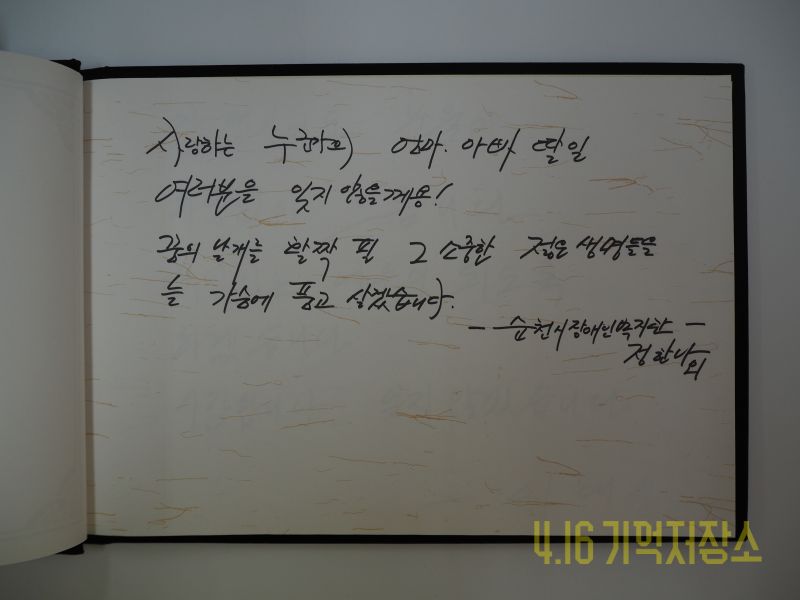 사랑하는 누군가의 엄마. 아빠. 딸일
여러분을 잊지 않을께용!
꿈의 날개를 활짝 필 그 소중한 젊은 생명들을
늘 가슴에 품고 살겠습니다.
- 순천시장애인복지관 -
정한나 외
4.16 기억저장소